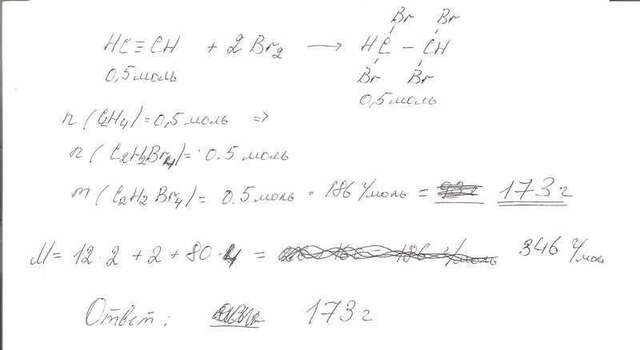 Br Br
HC≡CH + 2Br₂ ⟶ HC – CH
Br Br
0,5 моль 0,5 моль
n (C₂H₄) = 0,5 моль ⇒
n (C₂H₂Br₄) = 0.5 моль
m (C₂H₂Br₄) = 0.5 моль · 186 г/моль = 173 г
M = 12·2 + 2 + 80·4 = 346 г/моль
Ответ: 173 г